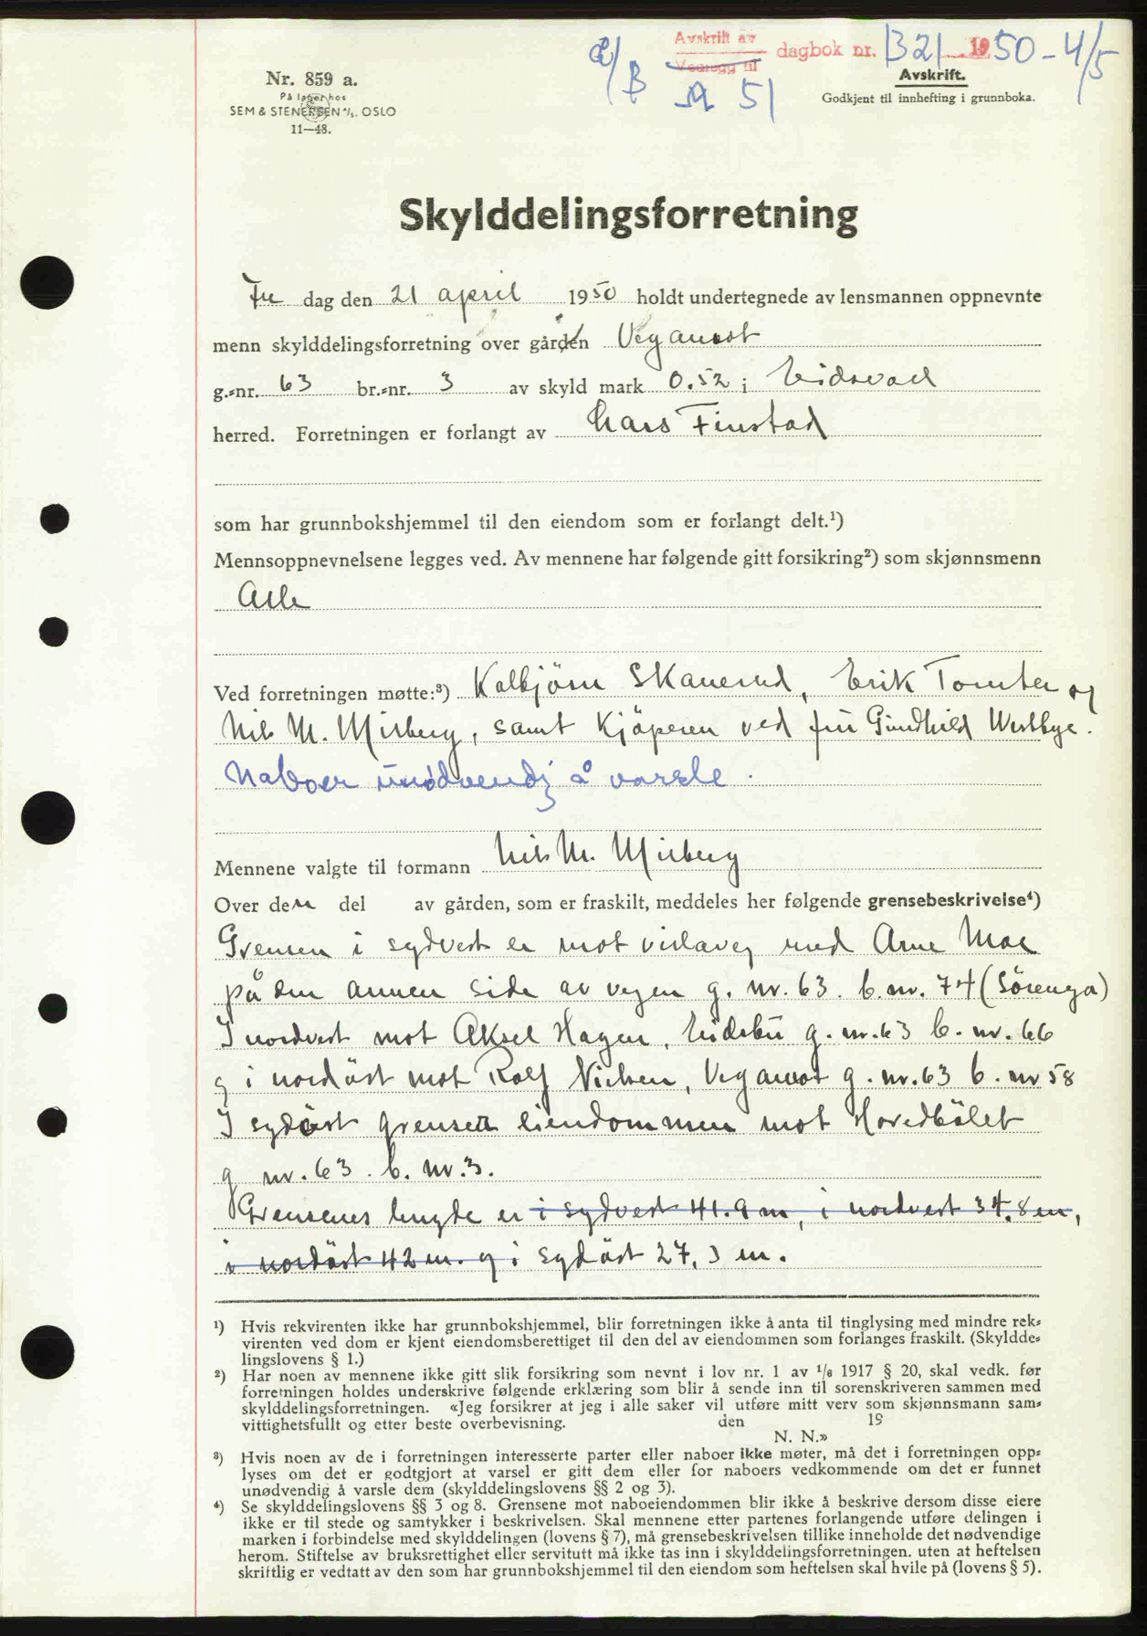 Avskrift av
Vedlegg til
dagbok nr. 1321 1950 - 4/5
A 51
Avskrift.
Godkjent til innhefting i grunnboka.
Nr. 859 a.
På lager hos
SEM & STENERSEN A/S. OSLO
11—48.
Skylddelingsforretning
Fre dag den 21 april 1950 holdt undertegnede av lensmannen oppnevnte
menn skylddelingsforretning over gården Vegamot
g.-nr. 63 br.-nr. 3 av skyld mark 0.52 i Eidsvoll
herred. Forretningen er forlangt av Lars Finstad
som har grunnbokshjemmel til den eiendom som er forlangt delt.¹)
Mennsoppnevnelsene legges ved. Av mennene har følgende gitt forsikring²) som skjønnsmenn
Alle
Ved forretningen møtte:³) Kolbjörn Skanerud, Erik Tomter og
Nils M. Misberg, samt Kjöperen ved fru Gundhild Westbye.
Naboer unødvendg å varsle.
Mennene valgte til formann Nils M. Misberg
Over den del av gården, som er fraskilt, meddeles her følgende grensebeskrivelse⁴)
Grensen i sydvest er mot veg med Arne Moe
på den annen side av vegen g. nr. 63. b. nr. 74 (Sörenga)
I nordvest mot Aksel Hagen, Eidebu g. nr. 63 b. nr. 66
og i nordöst mot Rolf Nielsen, Vegamot g. nr. 63 b. nr 58
I sydöst grenser eiendommen mot Hovedbölet
g nr. 63. b. nr. 3.
Grensenes lengde er i sydvest 41.9 m, i nordvest 34,8 m,
i nordöst 42 m. og i sydöst 27,3 m.
¹) Hvis rekvirenten ikke har grunnbokshjemmel, blir forretningen ikke å anta til tinglysing med mindre rek-
virenten ved dom er kjent eiendomsberettiget til den del av eiendommen som forlanges fraskilt. (Skyldde-
lingslovens § 1.)
²) Har noen av mennene ikke gitt slik forsikring som nevnt i lov nr. 1 av 1/6 1917 § 20, skal vedk. før
forretningen holdes underskrive følgende erklæring som blir å sende inn til sorenskriveren sammen med
skylddelingsforretningen. «Jeg forsikrer at jeg i alle saker vil utføre mitt verv som skjønnsmann sam-
vittighetsfullt og etter beste overbevisning. den 19
N. N.»
³) Hvis noen av de i forretningen interesserte parter eller naboer ikke møter, må det i forretningen opp-
lyses om det er godtgjort at varsel er gitt dem eller for naboers vedkommende om det er funnet
unødvendig å varsle dem (skylddelingslovens §§ 2 og 3).
⁴) Se skylddelingslovens §§ 3 og 8. Grensene mot naboeiendommen blir ikke å beskrive dersom disse eiere
ikke er til stede og samtykker i beskrivelsen. Skal mennene etter partenes forlangende utføre delingen i
marken i forbindelse med skylddelingen (lovens § 7), må grensebeskrivelsen tillike inneholde det nødvendige
herom. Stiftelse av bruksrettighet eller servitutt må ikke tas inn i skylddelingsforretningen, uten at heftelsen
skriftlig er vedtatt av den som har grunnbokshjemmel til den eiendom som heftelsen skal hvile på (lovens § 5).